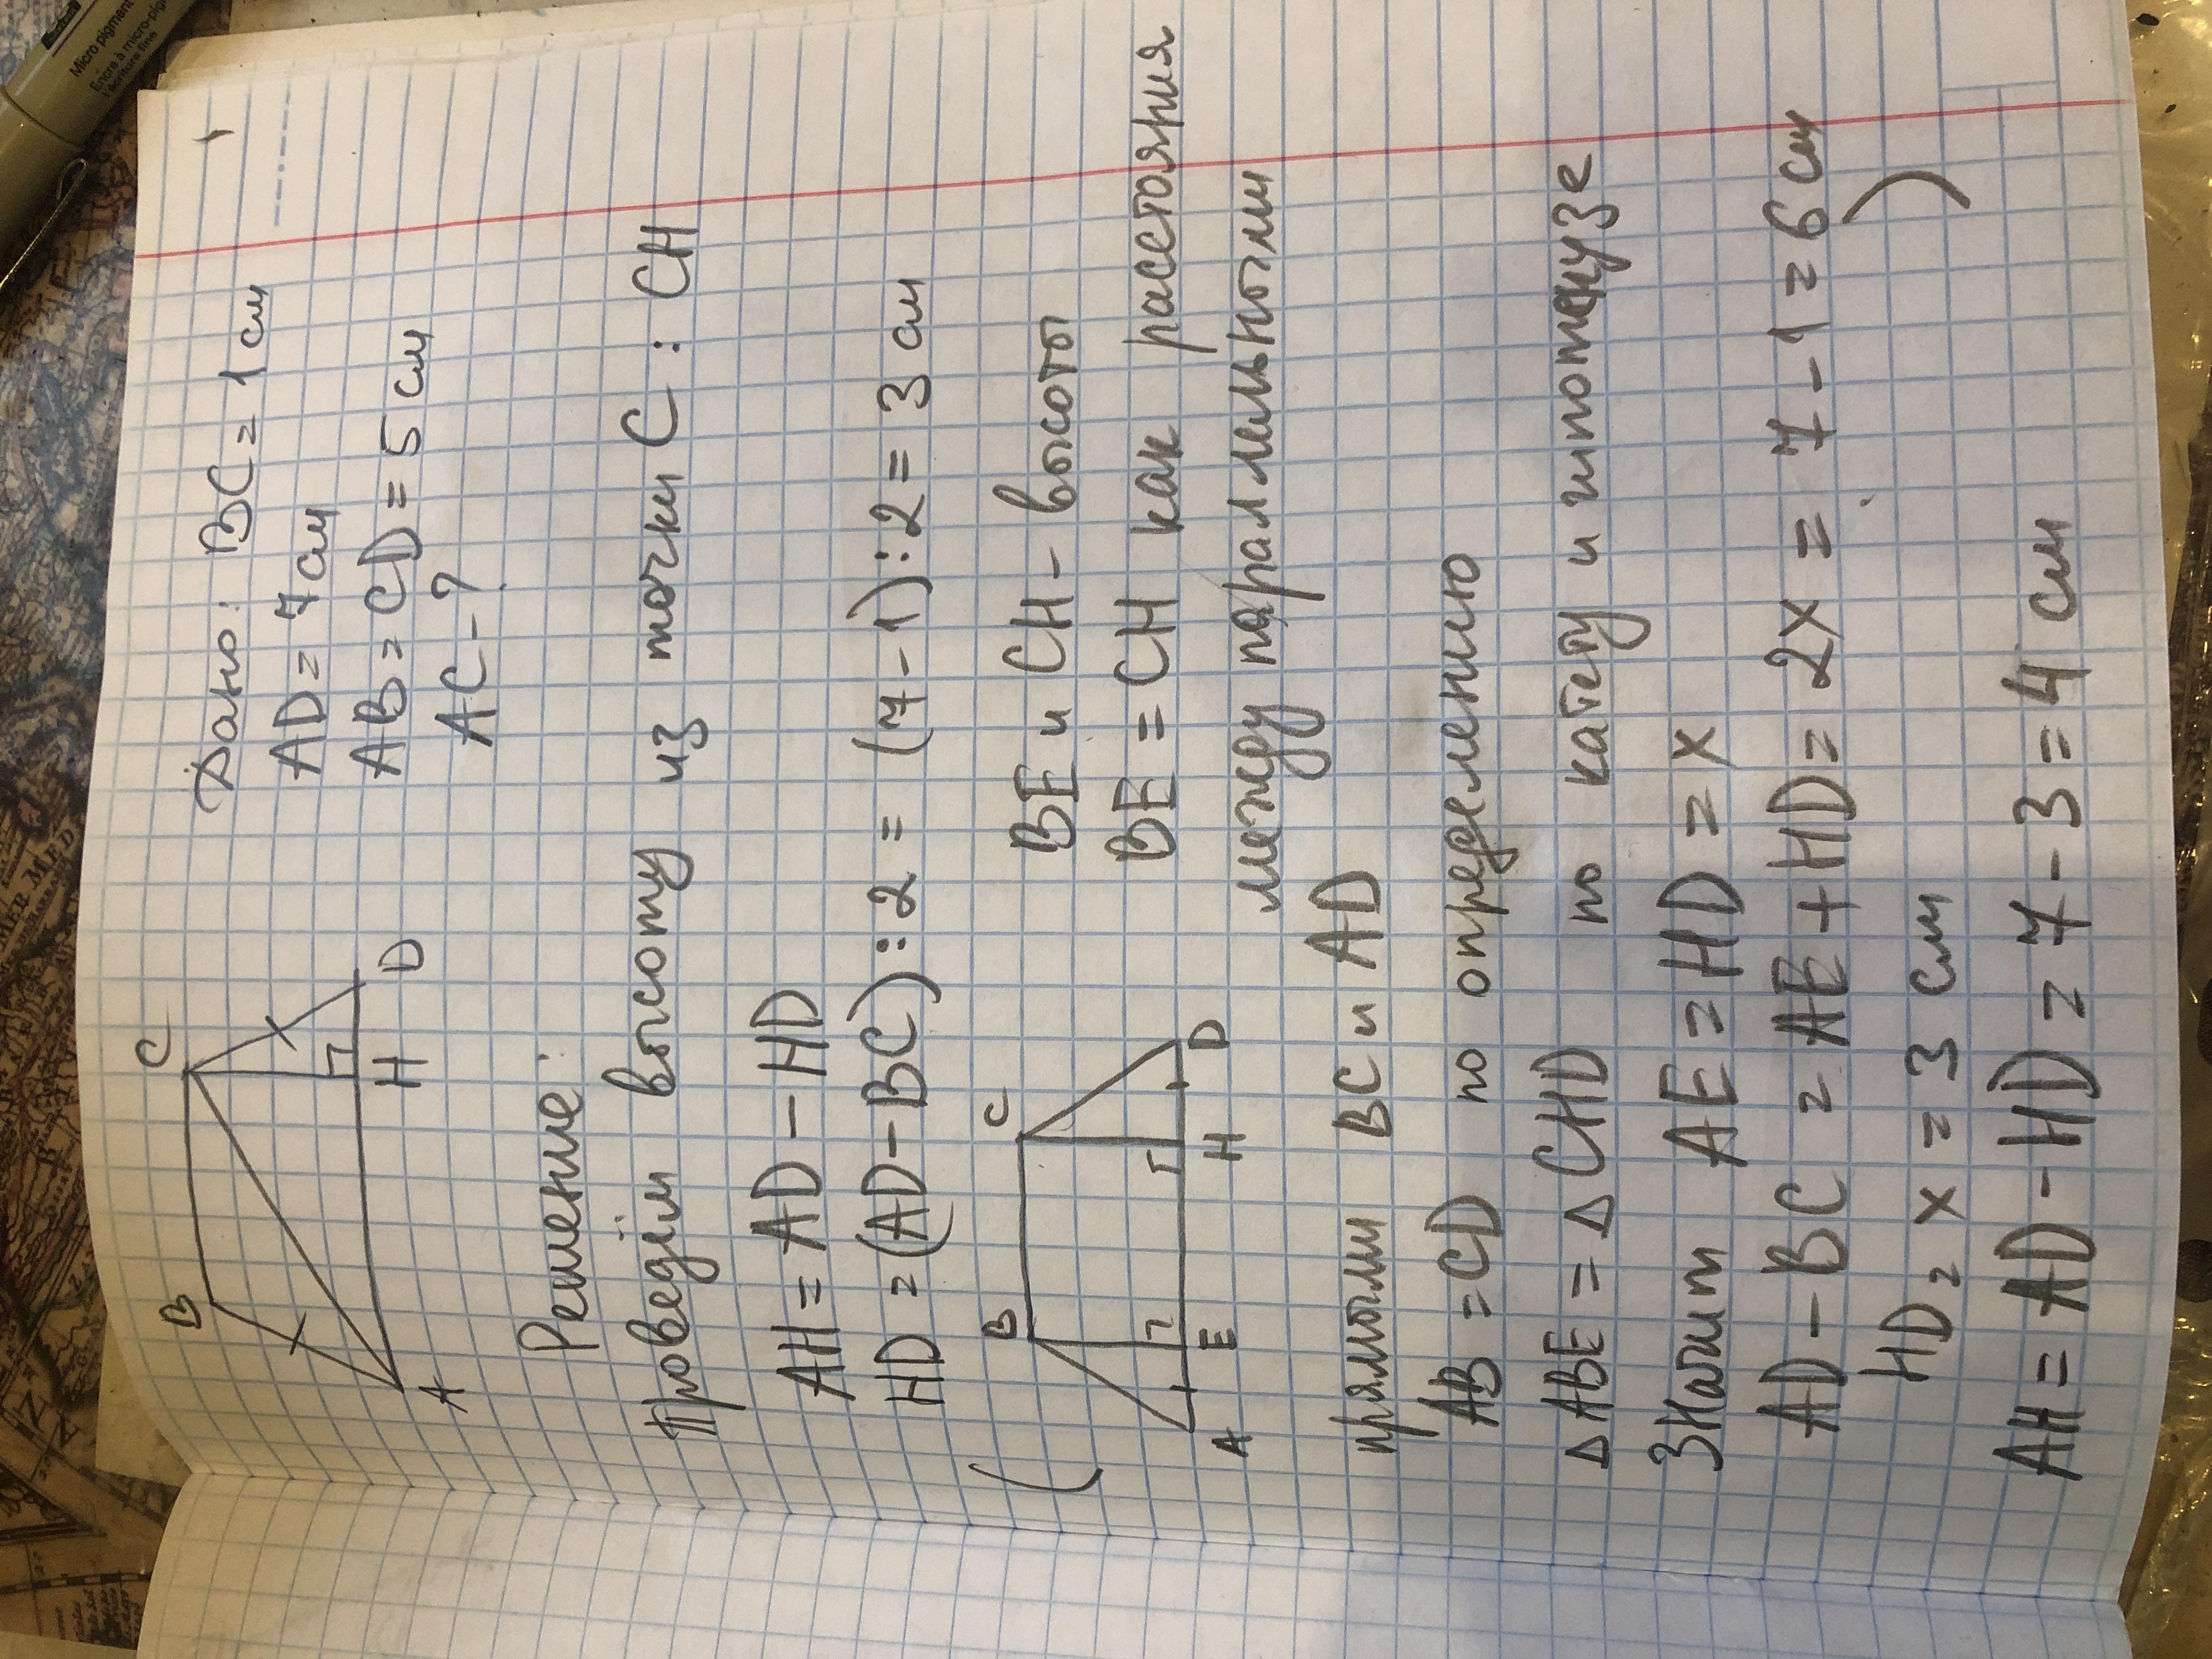 Micro pigment
Encre à micro-pig
l'écriture fine
MER MED
B C
A H D
Дано: BC = 1 см
AD = 7 см
AB = CD = 5 см
AC - ?
Решение:
Проведём высоту из точки C : CH
AH = AD - HD
HD = (AD - BC) : 2 = (7 - 1) : 2 = 3 см
( B C
A E H D
BE и CH - высоты
BE = CH как расстояния
между параллельными
прямыми BC и AD
AB = CD по определению
Δ ABE = Δ CHD по катету и гипотенузе
Значит AE = HD = x
AD - BC = AE + HD = 2x = 7 - 1 = 6 см
HD = x = 3 см )
AH = AD - HD = 7 - 3 = 4 см